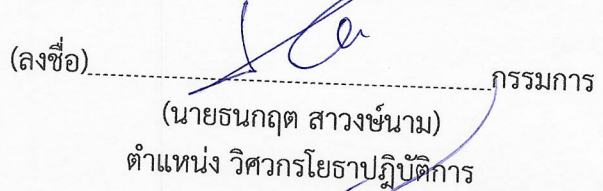 (ลงชื่อ)........................................................กรรมการ
(นายธนกฤต สาวงษ์นาม)
ตำแหน่ง วิศวกรโยธาปฏิบัติการ